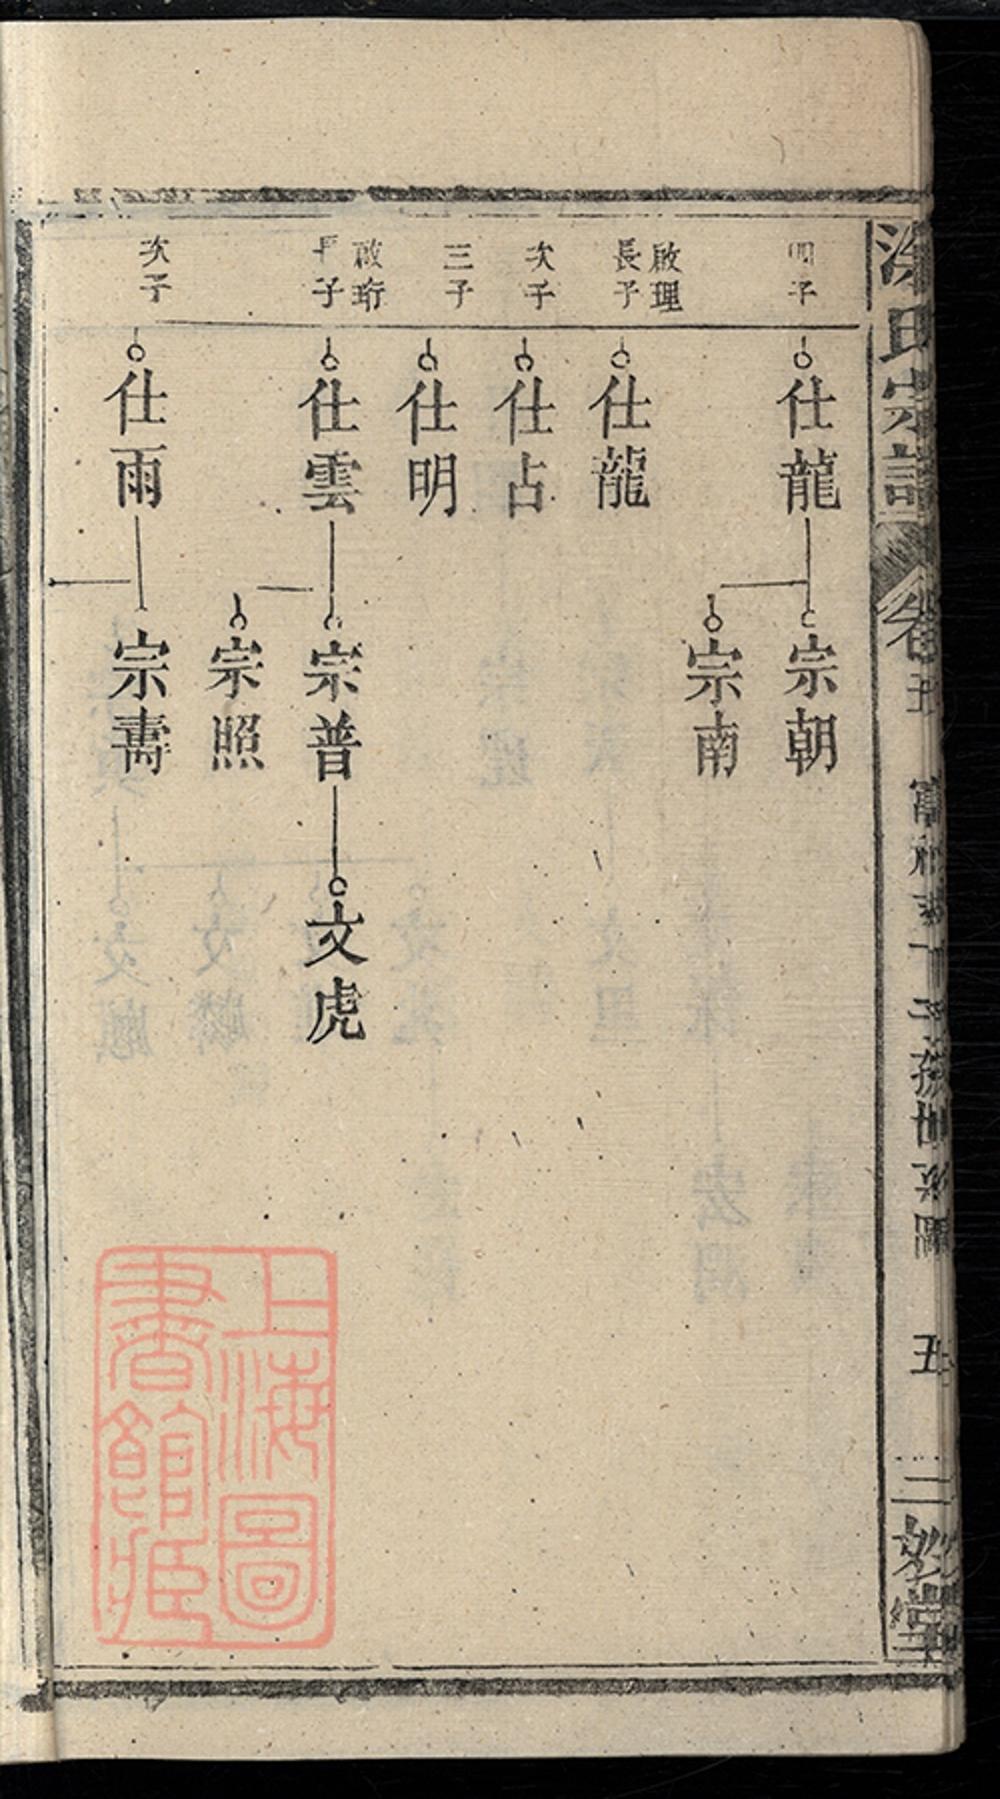 氏宗譜
卷五
五
二
堂
子
仕龍
宗朝
宗南
啟理
長子
仕龍
次子
仕占
三子
仕明
啟珩
長子
仕雲
宗普
文虎
宗照
次子
仕雨
宗壽
上海圖
書館藏